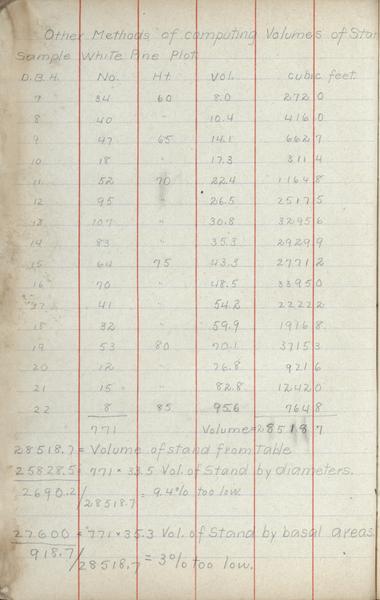 Other Methods of computing Volumes of Stan
Sample White Pine Plot
D.B.H. No. Ht. Vol. cubic feet.
7 34 60 8.0 272 0
8 40 " 10.4 416 0
9 47 65 14.1 662 7
10 18 " 17.3 311 4
11 52 70 22.4 1164 8
12 95 " 26.5 2517 5
13 107 " 30.8 3295 6
14 83 " 35.3 2929 9
15 64 75 43.3 2771 2
16 70 " 48.5 3395 0
17 41 " 54.2 2222 2
18 32 " 59.9 1916 8
19 53 80 70.1 3715 3
20 12 " 76.8 921 6
21 15 " 82.8 1242 0
22 8 85 95.6 764 8
771 Volume= 28518 7
28518.7 = Volume of stand from Table
25828.5 = 771 × 33.5 Vol. of Stand by diameters.
2690.2/28518.7 = 9.4% too low.
27600 = 771×35.3 Vol. of Stand by basal areas
918.7/28518.7 = 3% too low.